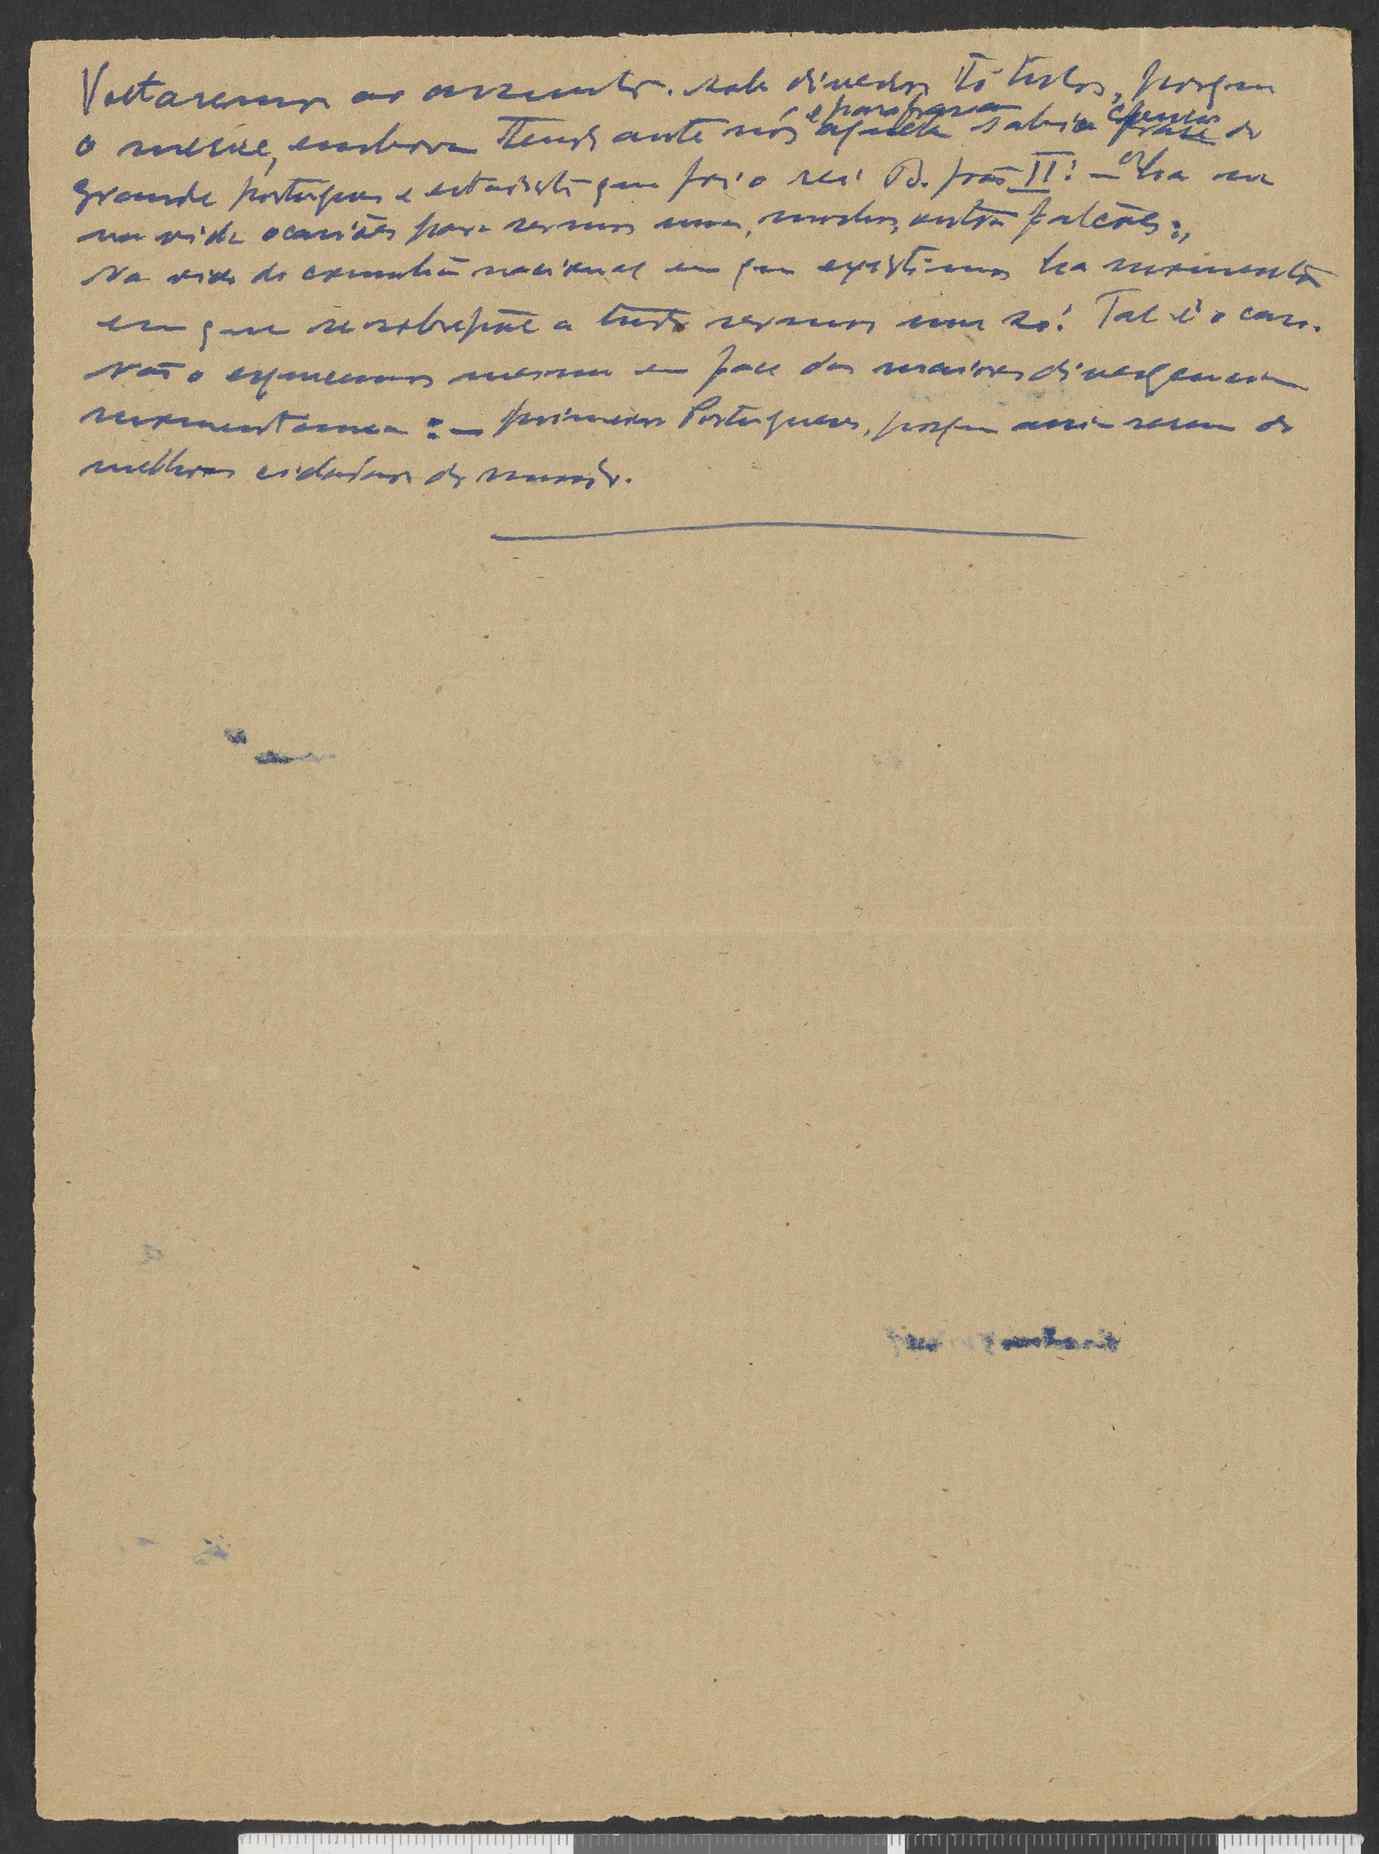 Voltaremos ao assunto. sob diversos titulos, porque
o merece, embora tendo ante nós e parafrasear aquela sabia do
grande português e estadista que foi o rei D. João II: — "ha
na vida ocasiões para sermos umas, mochos, outras falcões:,
Na vida de comunhão nacional em que existimos ha momentos
em que se sobrepõe a tudo sermos um só! Tal é o caso.
Não o esqueçamos mesmo em face das maiores divergencias
momentaneas: — primeiro Portugueses, porque assim seremos dos
melhores cidadãos do mundo.